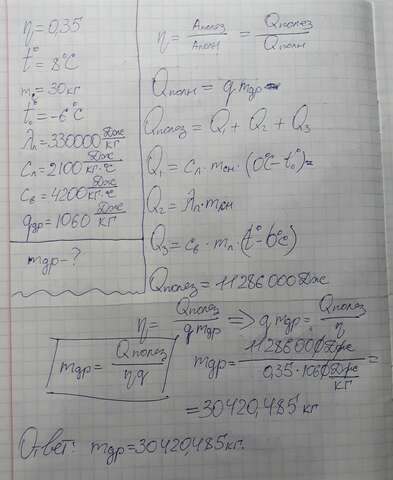 η = 0,35
t° = 8°C
m = 30 кг
t₀° = -6°C
λл = 330000 Дж/кг
Cл = 2100 Дж/кг·°C
Cв = 4200 Дж/кг·°C
qдр = 1060 Дж/кг
mдр - ?
η = Aполез/Aполн = Qполез/Qполн
Qполн = q mдр
Qполез = Q₁ + Q₂ + Q₃
Q₁ = Cл · mсн · (0°C - t₀°)
Q₂ = λл · mсн
Q₃ = Cв · mл (t° - 0°C)
Qполез = 11286000 Дж
η = Qполез/q mдр => q mдр = Qполез/η
mдр = Qполез/ηq
mдр = 11286000 Дж/0,35 · 1060 Дж/кг =
= 30420,485 кг
Ответ: mдр = 30420,485 кг.